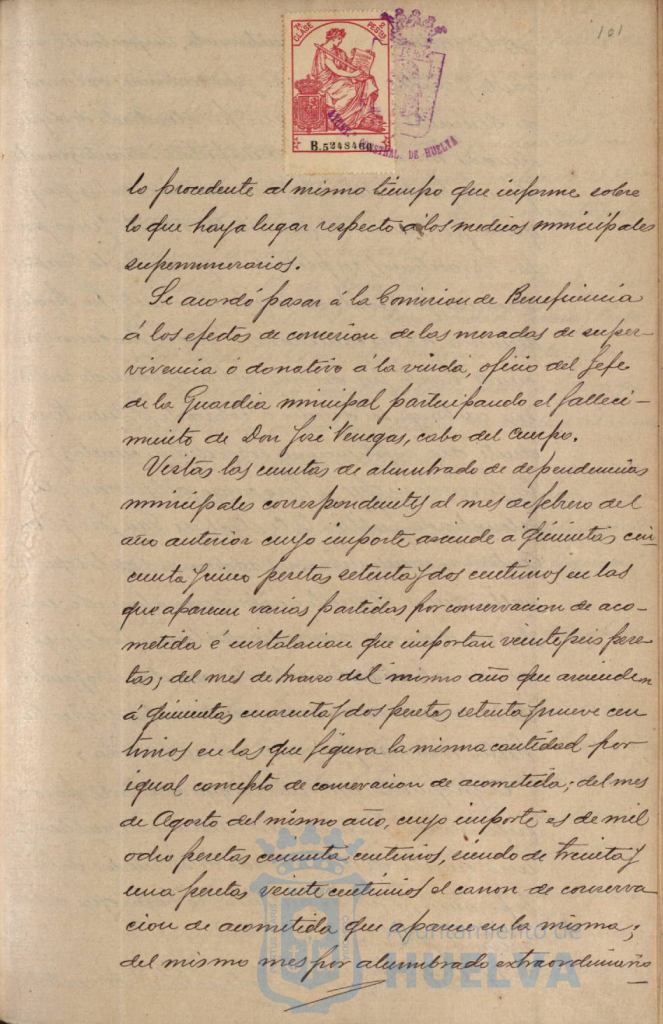 101
7ª CLASE 2 PESTAS
B.5248460
MUNICIPAL DE HUELVA
lo procedente al mismo tiempo que informe sobre
lo que haya lugar respecto á los medicos municipales
supernumerarios.
Se acordó pasar á la Comision de Beneficencia
á los efectos de concesion de las mesadas de super-
vivencia ó donativo á la viuda, oficio del Jefe
de la Guardia municipal participando el falleci-
miento de Don José Venegas, cabo del cuerpo.
Vistas las cuentas de alumbrado de dependencias
municipales correspondientes al mes de febrero del
año anterior cuyo importe asciende á quinientas cin-
cuenta y cinco pesetas setenta y dos centimos en las
que aparecen varias partidas por conservacion de aco-
metida é instalacion que importan veinte y seis pese-
tas; del mes de Marzo del mismo año que ascienden
á quinientas cuarenta y dos pesetas setenta y nueve cen-
timos en las que figura la misma cantidad por
igual concepto de conservacion de acometida; del mes
de Agosto del mismo año, cuyo importe es de mil
ocho pesetas cincuenta centimos, siendo de treinta y
una pesetas veinte centimos el canon de conserva
cion de acometida que aparece en la misma;
del mismo mes por alumbrado extraordinario
Ayuntamiento de
HUELVA